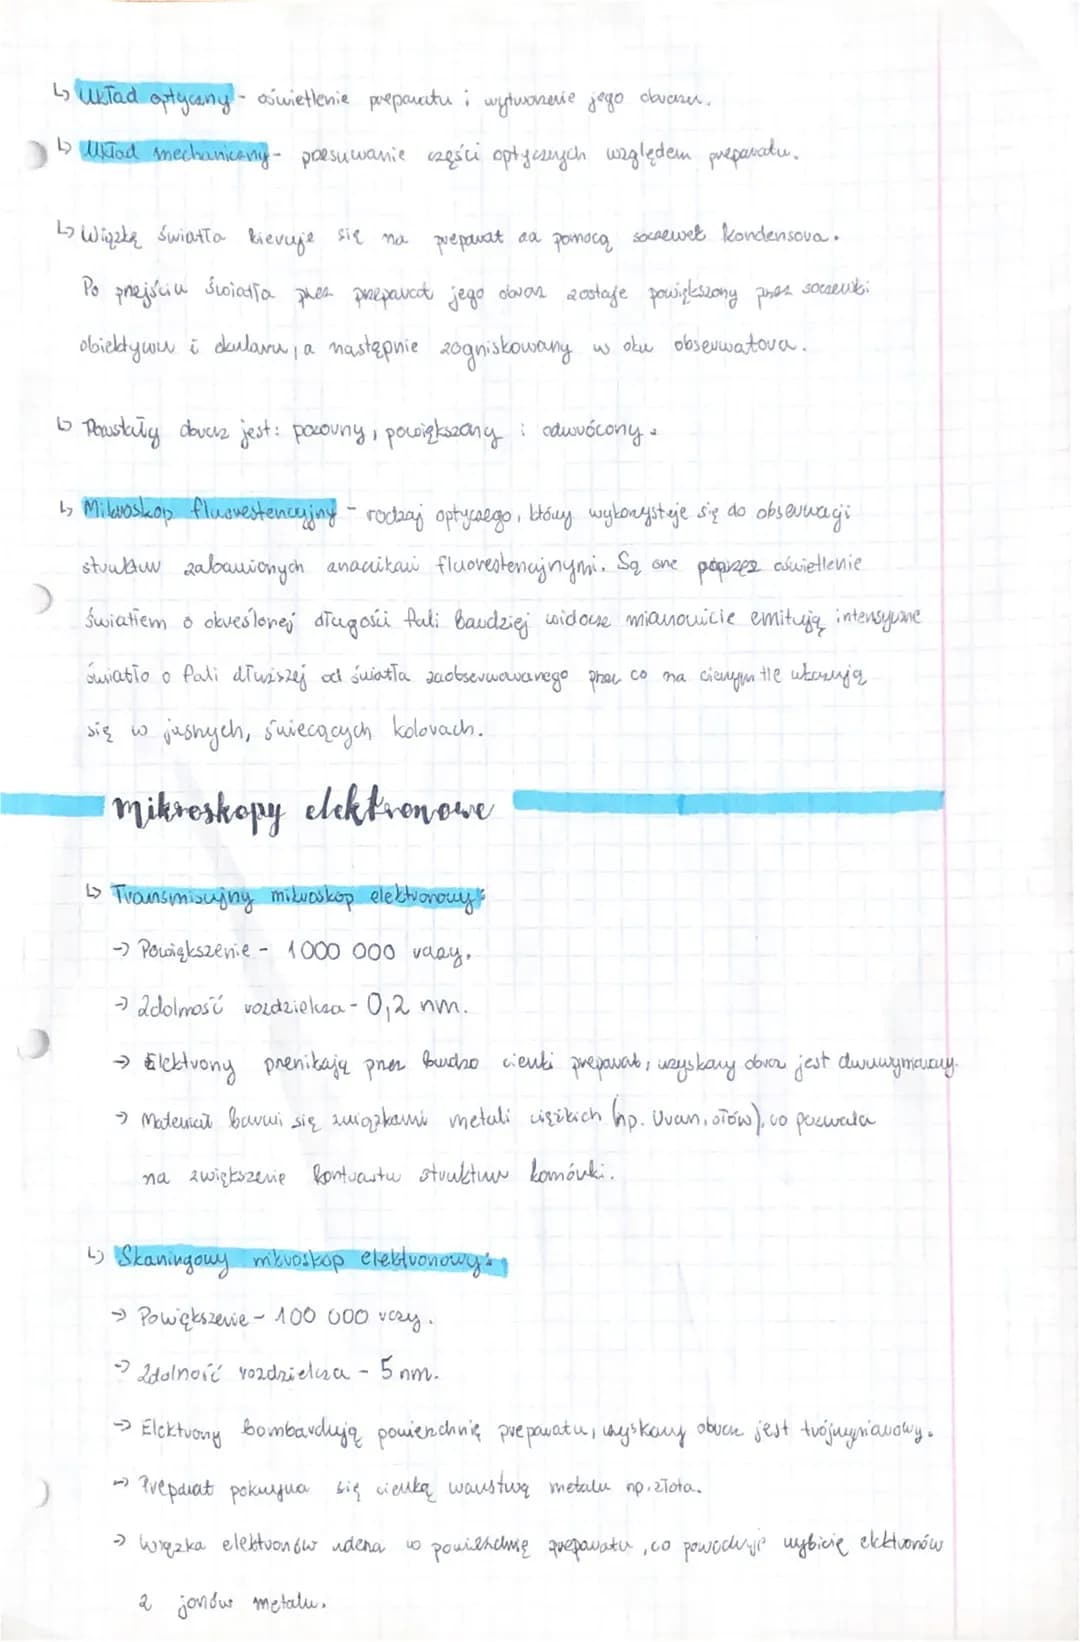 ↳ Układ optyczny - oświetlenie preparatu i wytworzenie jego obrazu.
↳ Układ mechaniczny - przesuwanie części optycznych względem preparatu.
↳ Wiązkę światła kieruje się na preparat za pomocą soczewek kondensora.
Po przejściu światła przez preparat jego obraz zostaje powiększony przez soczewki
obiektywu i okularu, a następnie zogniskowany w oku obserwatora.
↳ Powstały obraz jest: pozorny, powiększony i odwrócony.
↳ Mikroskop fluorestencyjny - rodzaj optycznego, który wykorzystuje się do obserwacji
struktur zabarwionych znacznikami fluorestencyjnymi. Są one poprzez oświetlenie
światłem o określonej długości fali bardziej widoczne mianowicie emitują intensywne
światło o fali dłuższej od światła zaobserwowanego przez co na ciemnym tle ukazują
się w jasnych, świecących kolorach.
mikroskopy elektronowe
↳ Transmisyjny mikroskop elektronowy:
→ Powiększenie - 1000 000 razy.
→ Zdolność rozdzielcza - 0,2 nm.
→ Elektrony przenikają przez bardzo cienki preparat, uzyskany obraz jest dwuwymiarowy.
→ Materiał barwi się związkami metali ciężkich (np. Uran, ołów), co pozwala
na zwiększenie kontrastu struktur komórki.
↳ Skaningowy mikroskop elektronowy:
→ Powiększenie - 100 000 razy.
→ Zdolność rozdzielcza - 5 nm.
→ Elektrony bombardują powierzchnię preparatu, uzyskany obraz jest trójwymiarowy.
→ Preparat pokrywa się cienką warstwą metalu np. złota.
→ Wiązka elektronów uderza w powierzchnię preparatu, co powoduje wybicie elektronów
z jonów metalu.